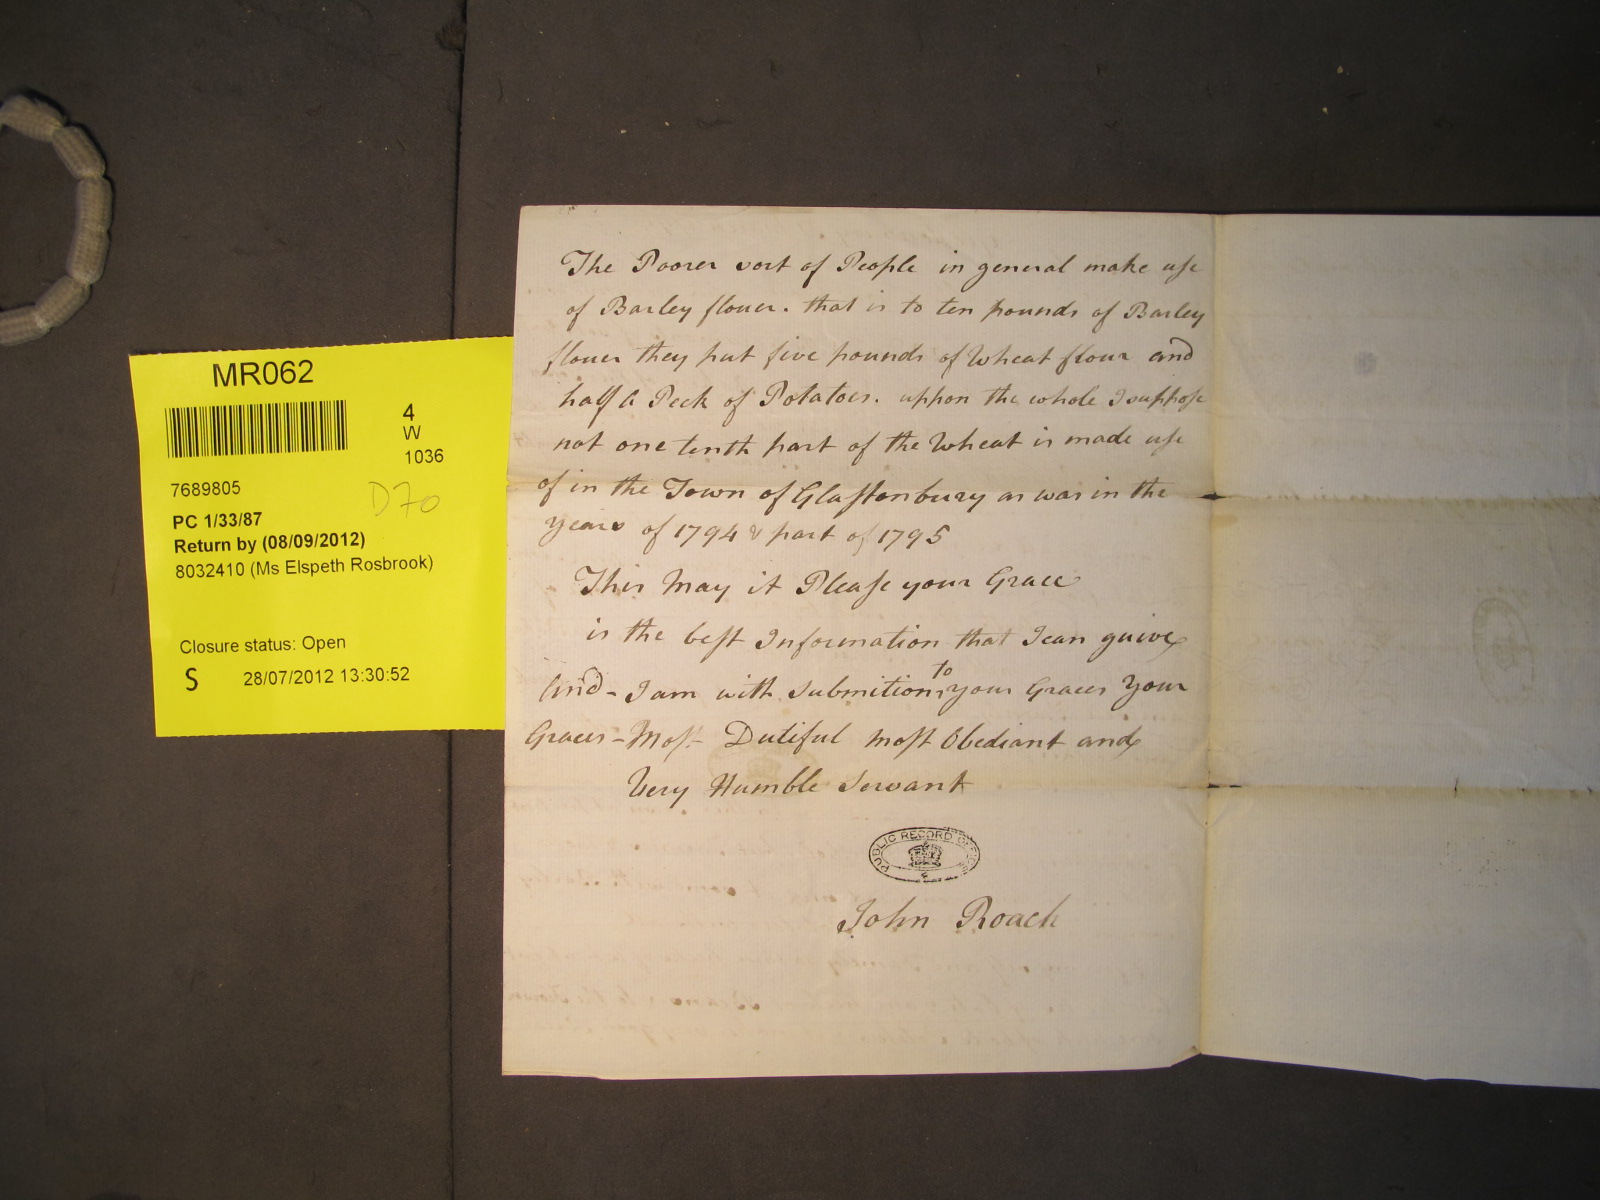 MR062
4
W
1036
7689805
D70
PC 1/33/87
Return by (08/09/2012)
8032410 (Ms Elspeth Rosbrook)
Closure status: Open
S 28/07/2012 13:30:52
The Poorer sort of People in general make use
of Barley flouer. that is to ten pounds of Barley
flouer they put five pounds of Wheat flour and
half a Peck of Potatoes. uppon the whole I suppose
not one tenth part of the Wheat is made use
of in the Town of Glastonbury as was in the
years of 1794 & part of 1795
This May it Please your Grace
is the best Information that I can guive
And - I am with submition to your Graces Your
Graces - Most Dutiful most Obediant and
Very Humble Servant
PUBLIC RECORD OFFICE
John Roach